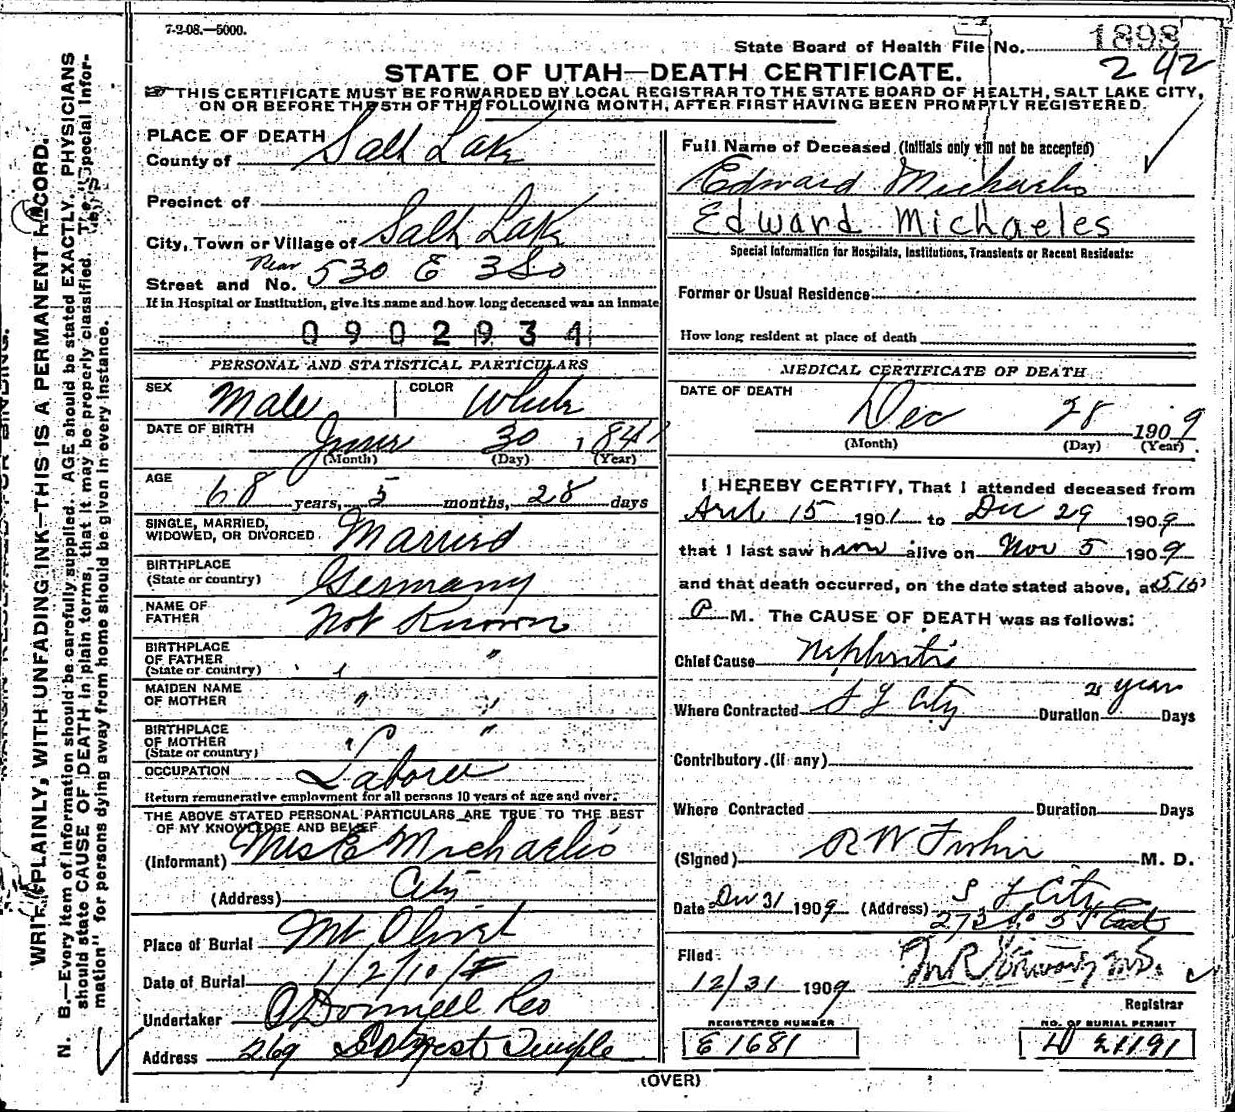 7-2-08.—5000.
State Board of Health File No. 1898
242
STATE OF UTAH—DEATH CERTIFICATE.
THIS CERTIFICATE MUST BE FORWARDED BY LOCAL REGISTRAR TO THE STATE BOARD OF HEALTH, SALT LAKE CITY,
ON OR BEFORE THE 5TH OF THE FOLLOWING MONTH, AFTER FIRST HAVING BEEN PROMPTLY REGISTERED.
PLACE OF DEATH
County of Salt Lake
Precinct of
City, Town or Village of Salt Lake
Rear
Street and No. 530 E 3 So
If in Hospital or Institution, give its name and how long deceased was an inmate
0902934
PERSONAL AND STATISTICAL PARTICULARS
SEX Male COLOR White
DATE OF BIRTH June 30 1841
(Month) (Day) (Year)
AGE 68 years, 5 months, 28 days
SINGLE, MARRIED,
WIDOWED, OR DIVORCED Married
BIRTHPLACE
(State or country) Germany
NAME OF
FATHER Not Known
BIRTHPLACE
OF FATHER " "
(State or country)
MAIDEN NAME
OF MOTHER " "
BIRTHPLACE
OF MOTHER " "
(State or country)
OCCUPATION Laborer
Return remunerative employment for all persons 10 years of age and over.
THE ABOVE STATED PERSONAL PARTICULARS ARE TRUE TO THE BEST
OF MY KNOWLEDGE AND BELIEF
(Informant) Mrs E Michaelis
(Address) City
Place of Burial Mt Olivet
Date of Burial 1/2/10
Undertaker O'Donnell & Co
Address 269 So West Temple
Full Name of Deceased (Initials only will not be accepted)
Edward Michaelis
Edward Michaeles
Special Information for Hospitals, Institutions, Transients or Recent Residents:
Former or Usual Residence
How long resident at place of death
MEDICAL CERTIFICATE OF DEATH
DATE OF DEATH
Dec 28 1909
(Month) (Day) (Year)
I HEREBY CERTIFY, That I attended deceased from
15 1901 to Dec 29 1909
that I last saw him alive on Nov 5 1909
and that death occurred, on the date stated above, at 5 15
P M. The CAUSE OF DEATH was as follows:
Chief Cause Nephritis
Where Contracted S L City Duration 2 years Days
Contributory (if any)
Where Contracted Duration Days
(Signed) R W Fisher M. D.
Date Dec 31 1909 (Address) S L City
273 So 5th East
Filed
12/31 1909
Registrar
REGISTERED NUMBER
E 1681
NO. OF BURIAL PERMIT
21191
(OVER)
WRITE PLAINLY, WITH UNFADING INK—THIS IS A PERMANENT RECORD.
N. B.—Every item of information should be carefully supplied. AGE should be stated EXACTLY. PHYSICIANS
should state CAUSE OF DEATH in plain terms, that it may be properly classified. The "Special Infor-
mation" for persons dying away from home should be given in every instance.